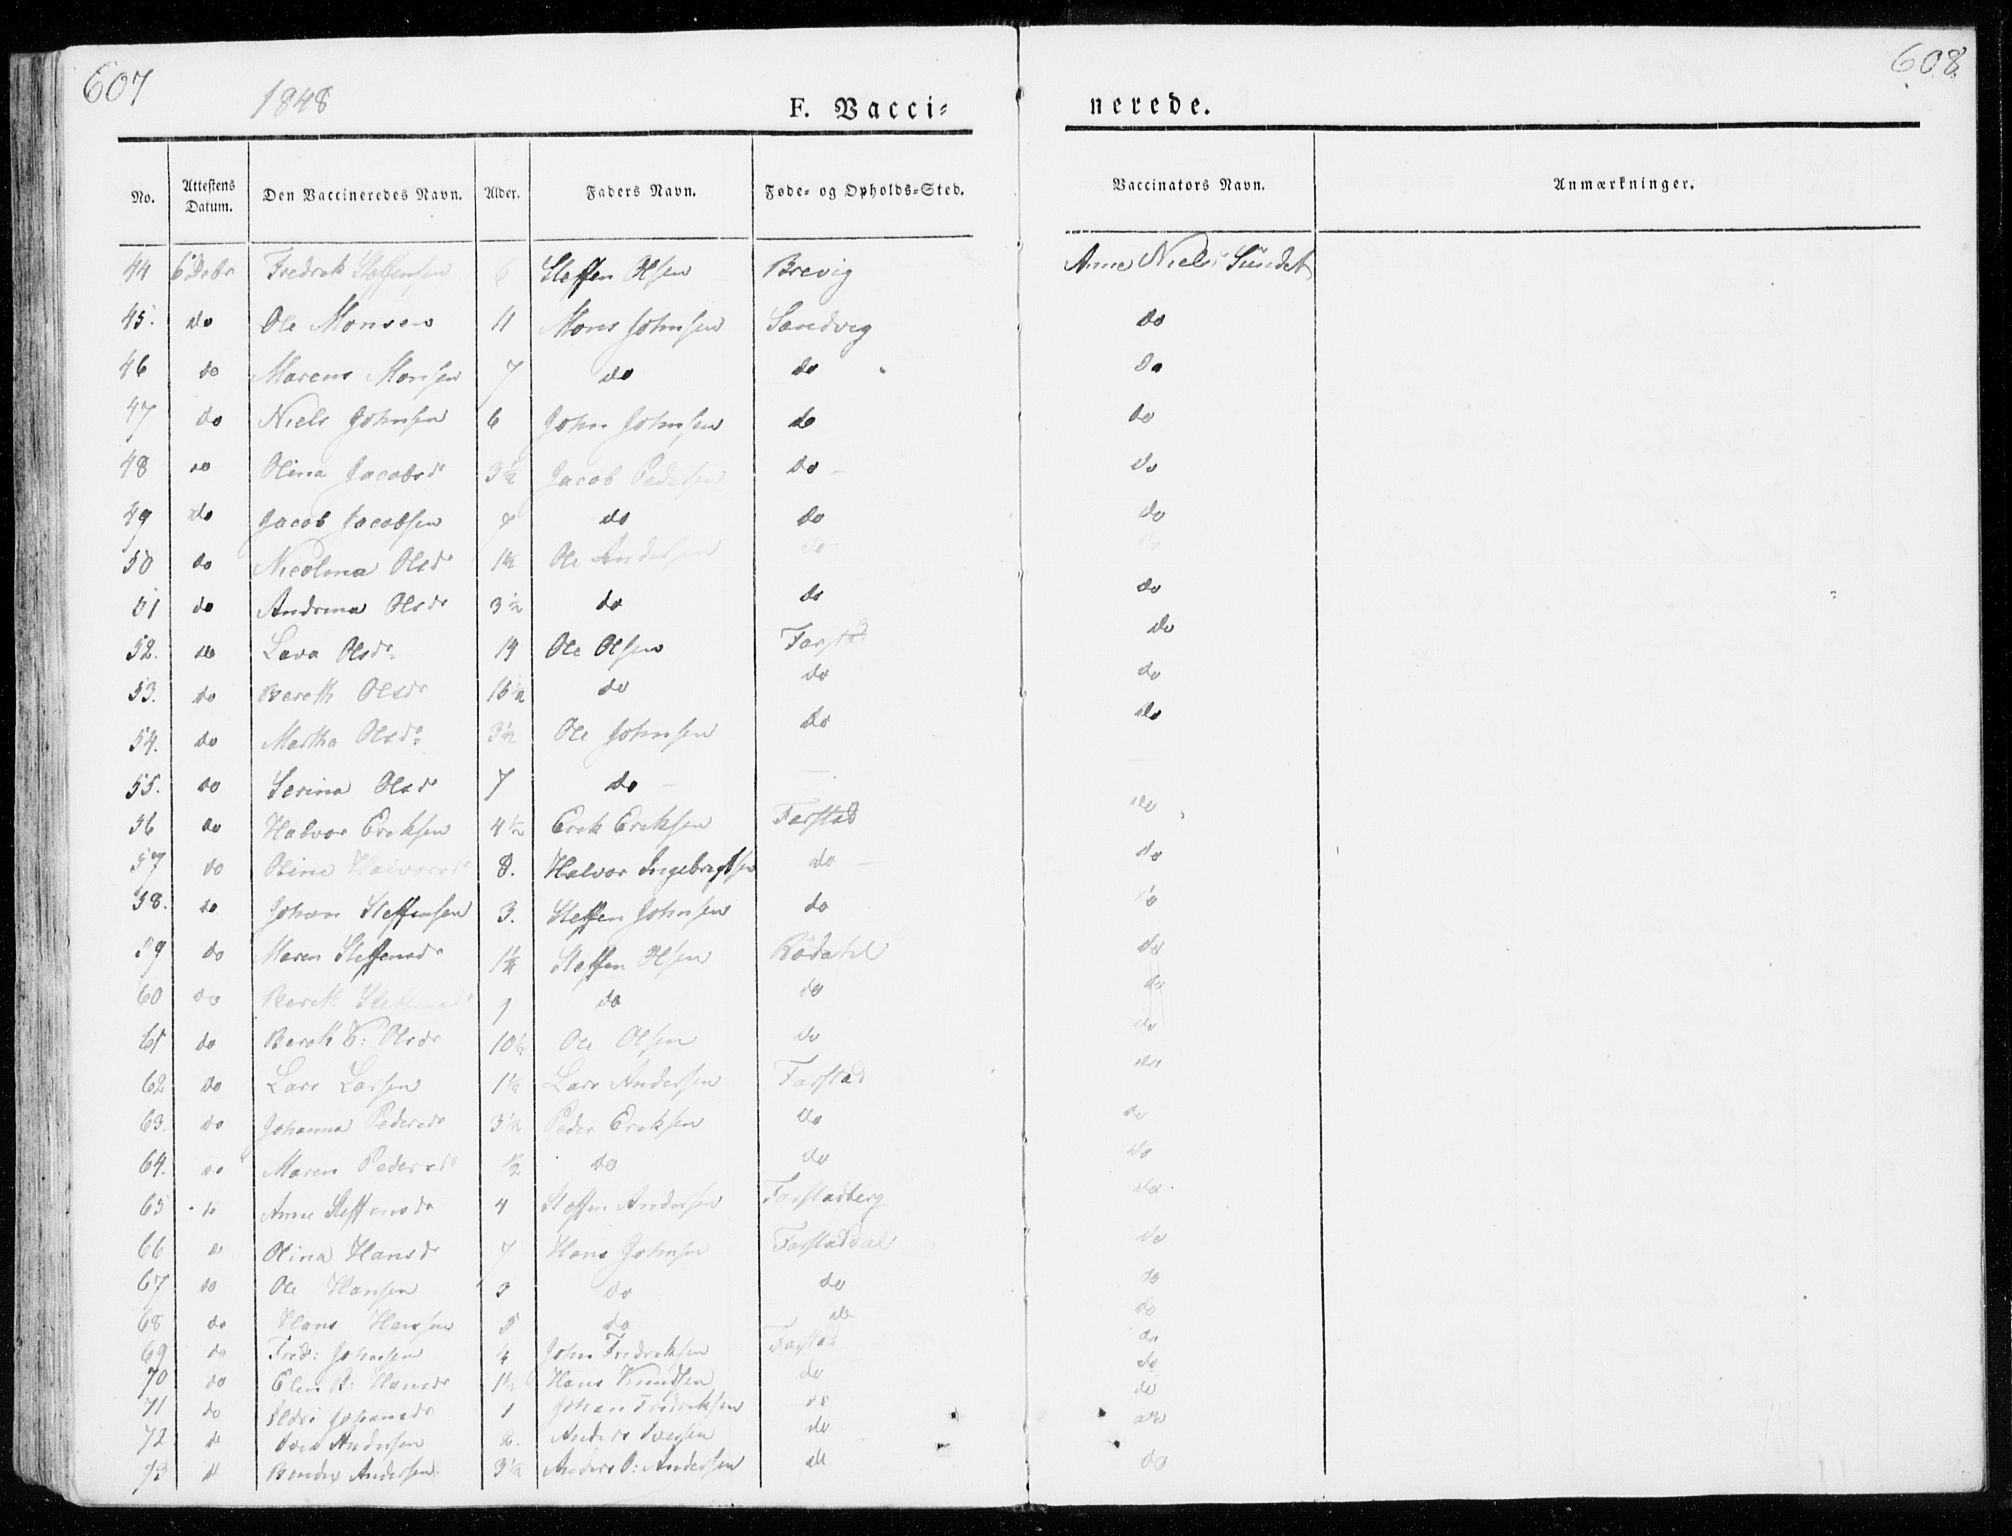 607 1848 F. Vacci- nerede. 608
No. Attestens Datum. Den Vaccineredes Navn. Alder. Faders Navn. Føde- og Opholds-Sted. Vaccinators Navn. Anmærkninger.
44 6 Debr Fredrek Steffensen 6 Steffen Olsen Brevig Anne Niels Sundet
45. do Ole Monsen 11 Mons Johnsen Sandvig do
46 do Marcus Monsen 7 do do do
47 do Niels Johnsen 6 John Johnsen do do
48 do Olina Jacobsdr 3½ Jacob Pedersen do - do
49 do Jacob Jacobsen do do do
50 do Nicolina Olsdr 1½ Ole Andersen do - do
51 do Andrina Olsdr 3½ do do do
52. do Lava Olsdr. 14 Ole Olsen Farstad do
53. do Bereth Olsdr 16½ do do do
54. do Martha Olsdr 3½ Ole Johnsen do do
55. do Serina Olsdr 7 do - — —
56 do Halvor Ereksen 4½ Erek Ereksen Farstad do
57 do Oline Halvorsdr 8. Halvor Ingebregtsen do — do
58. do Johan Steffensen 3. Steffen Johnsen do do
59 do Maren Steffensdr 1½ Steffen Olsen Rödahl do
60 do Bereth Steffensdr 9 do do do
61 do Bereth K: Olsdr 10½ Ole Olsen do do
62 do Lars Larsen 1½ Lars Andersen Farstad do
63. do Johanna Pedersdr 3½ Peder Ereksen do do
64. do Maren Pedersdr ½ do do do
65 do Anne Steffensdr 4 Steffen Andersen Farstadberg do
66 do Olina Hansdr 7 Hans Johnsen Farstaddal do
67 do Ole Hansen 3 do do do
68 do Hans Hansen 5 do do do
69 do Fred: Johnsen 4 John Fredreksen Farstad do
70 do Elen B: Hansdr 1½ Hans Knudsen do do
71 do Johansdr 1 Johan Fredreksen do do
72 do Andersen 2. Anders Iversen do do
73 do Andersen. 3½ Anders O: Andersen do do